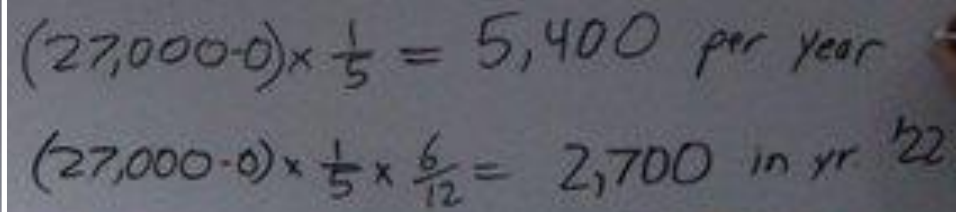 (27,000-0)× 1/5 = 5,400 per year
(27,000-0)× 1/5 × 6/12 = 2,700 in yr '22